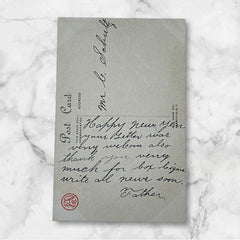 Post Card
Mr C. Schultz
Happy new Year
your letter was
verry welcom also
thank you verry
much for box
write all never soon.
Father.